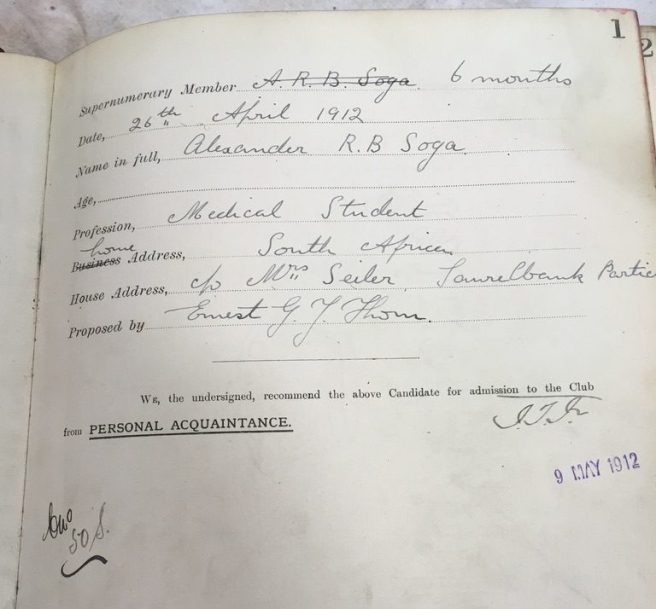 1
2
Supernumerary Member A. R. B. Soga. 6 months
Date, 26th April 1912
Name in full, Alexander R. B Soga
Age,
Profession, Medical Student
home
Business Address, South Africa
House Address, c/o Mrs Seiler, Laurelbank Partic
Proposed by Ernest G. J. Thom.
WE, the undersigned, recommend the above Candidate for admission to the Club
from PERSONAL ACQUAINTANCE.
9 MAY 1912